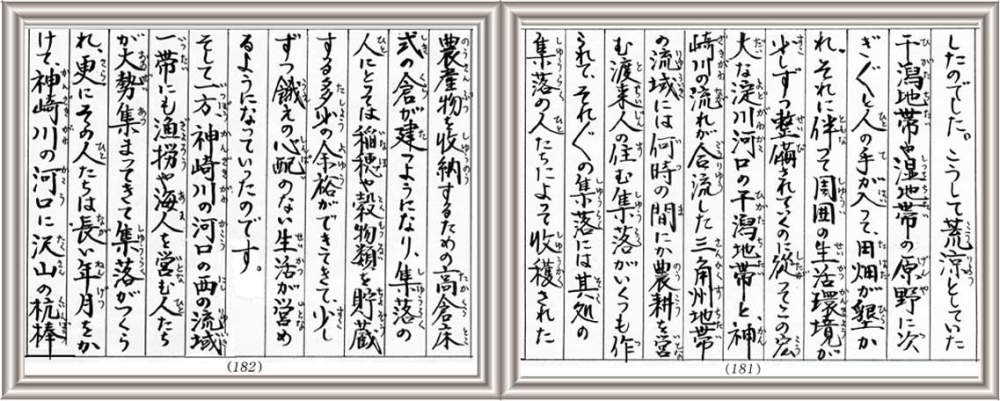 したのでした。こうして荒涼としていた
干潟地帯や湿地帯の原野に次
ぎ〱と人の手が入って、田畑が墾か
れ、それに伴って周囲の生活環境が
少しずつ整備されていくのに従ってこの宏
大な淀川河口の干潟地帯と、神
崎川の流れが合流した三角州地帯
の流域には何時の間にか農耕を営
む渡来人の住む集落がいくつも作
られて、それ〲の集落には其処の
集落の人たちによって収穫された
(181)
農産物を収納するための高倉床
式の倉が建つようになり、集落の
人にとっては稲穂や穀物類を貯蔵
する多少の余裕ができてきて、少し
ずつ餓えの心配のない生活が営め
るようになっていったのです。
そして一方、神崎川の河口の西の流域
一帯にも漁撈や海人を営む人たち
が大勢集まってきて集落がつくら
れ、更にその人たちは長い年月をか
けて、神崎川の河口に沢山の杭棒
(182)